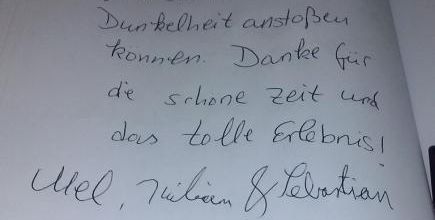 Dunkelheit anstoßen
können. Danke für
die schöne Zeit und
das tolle Erlebnis!
Mel, Julian & Sebastian